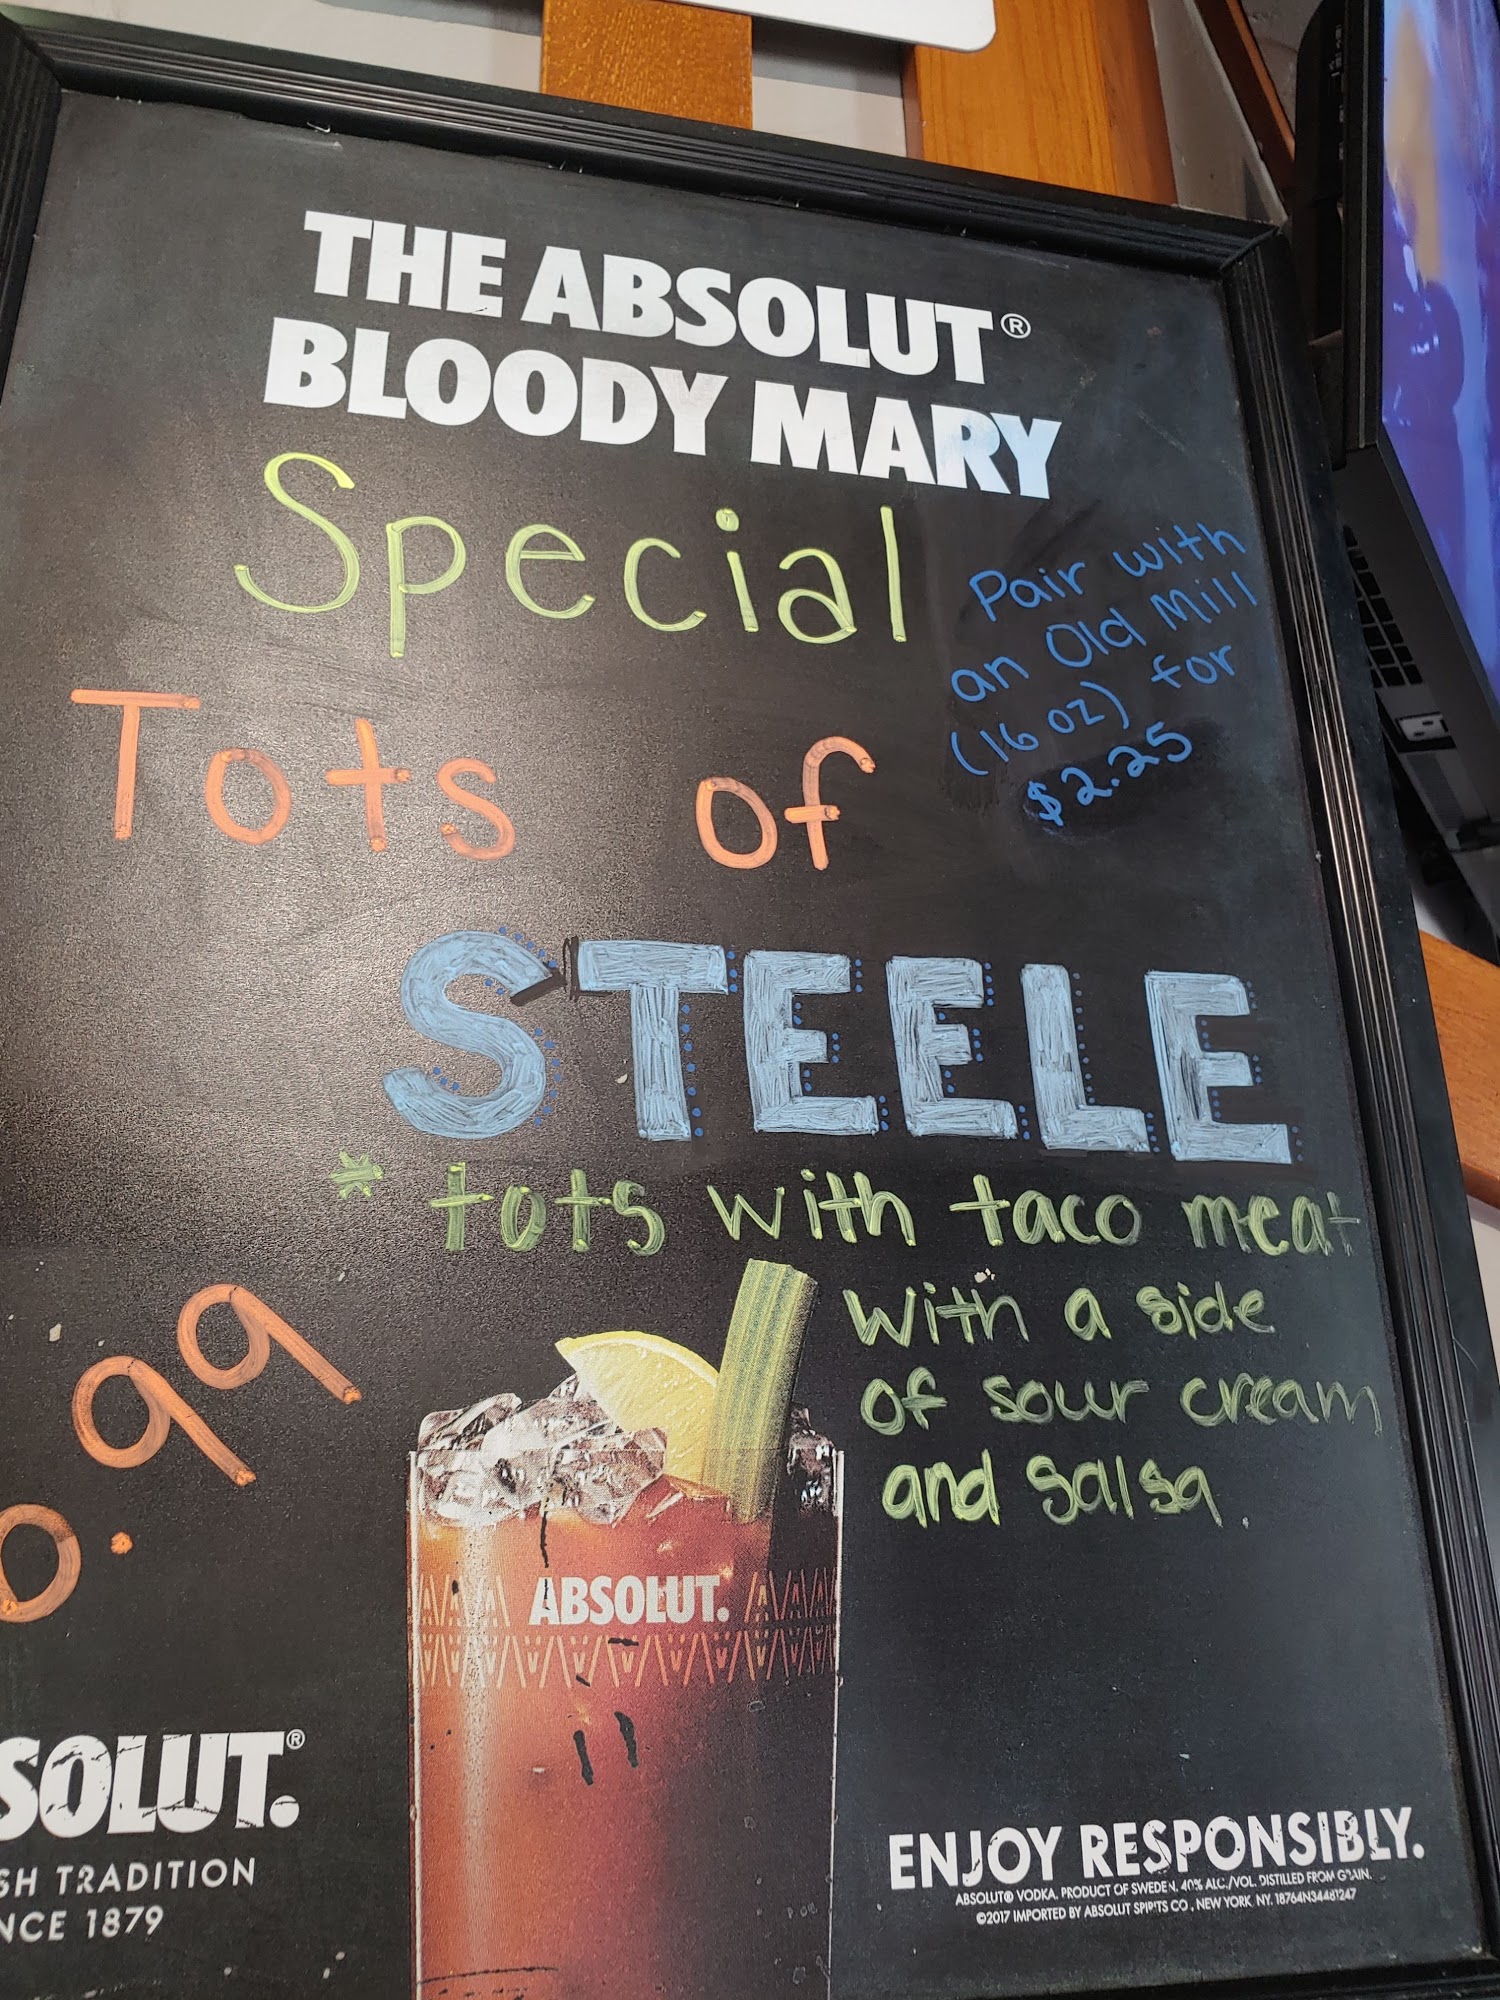 THE ABSOLUT®
BLOODY MARY
Special
Pair with
an Old Mill
(16 oz) for
$2.25
Tots of
STEELE
* tots with taco meat
with a side
of sour cream
and salsa.
0.99
ABSOLUT.
SOLUT.®
SH TRADITION
NCE 1879
ENJOY RESPONSIBLY.
ABSOLUT® VODKA. PRODUCT OF SWEDEN. 40% ALC./VOL. DISTILLED FROM GRAIN.
©2017 IMPORTED BY ABSOLUT SPIRITS CO., NEW YORK, NY. 18764N34481247